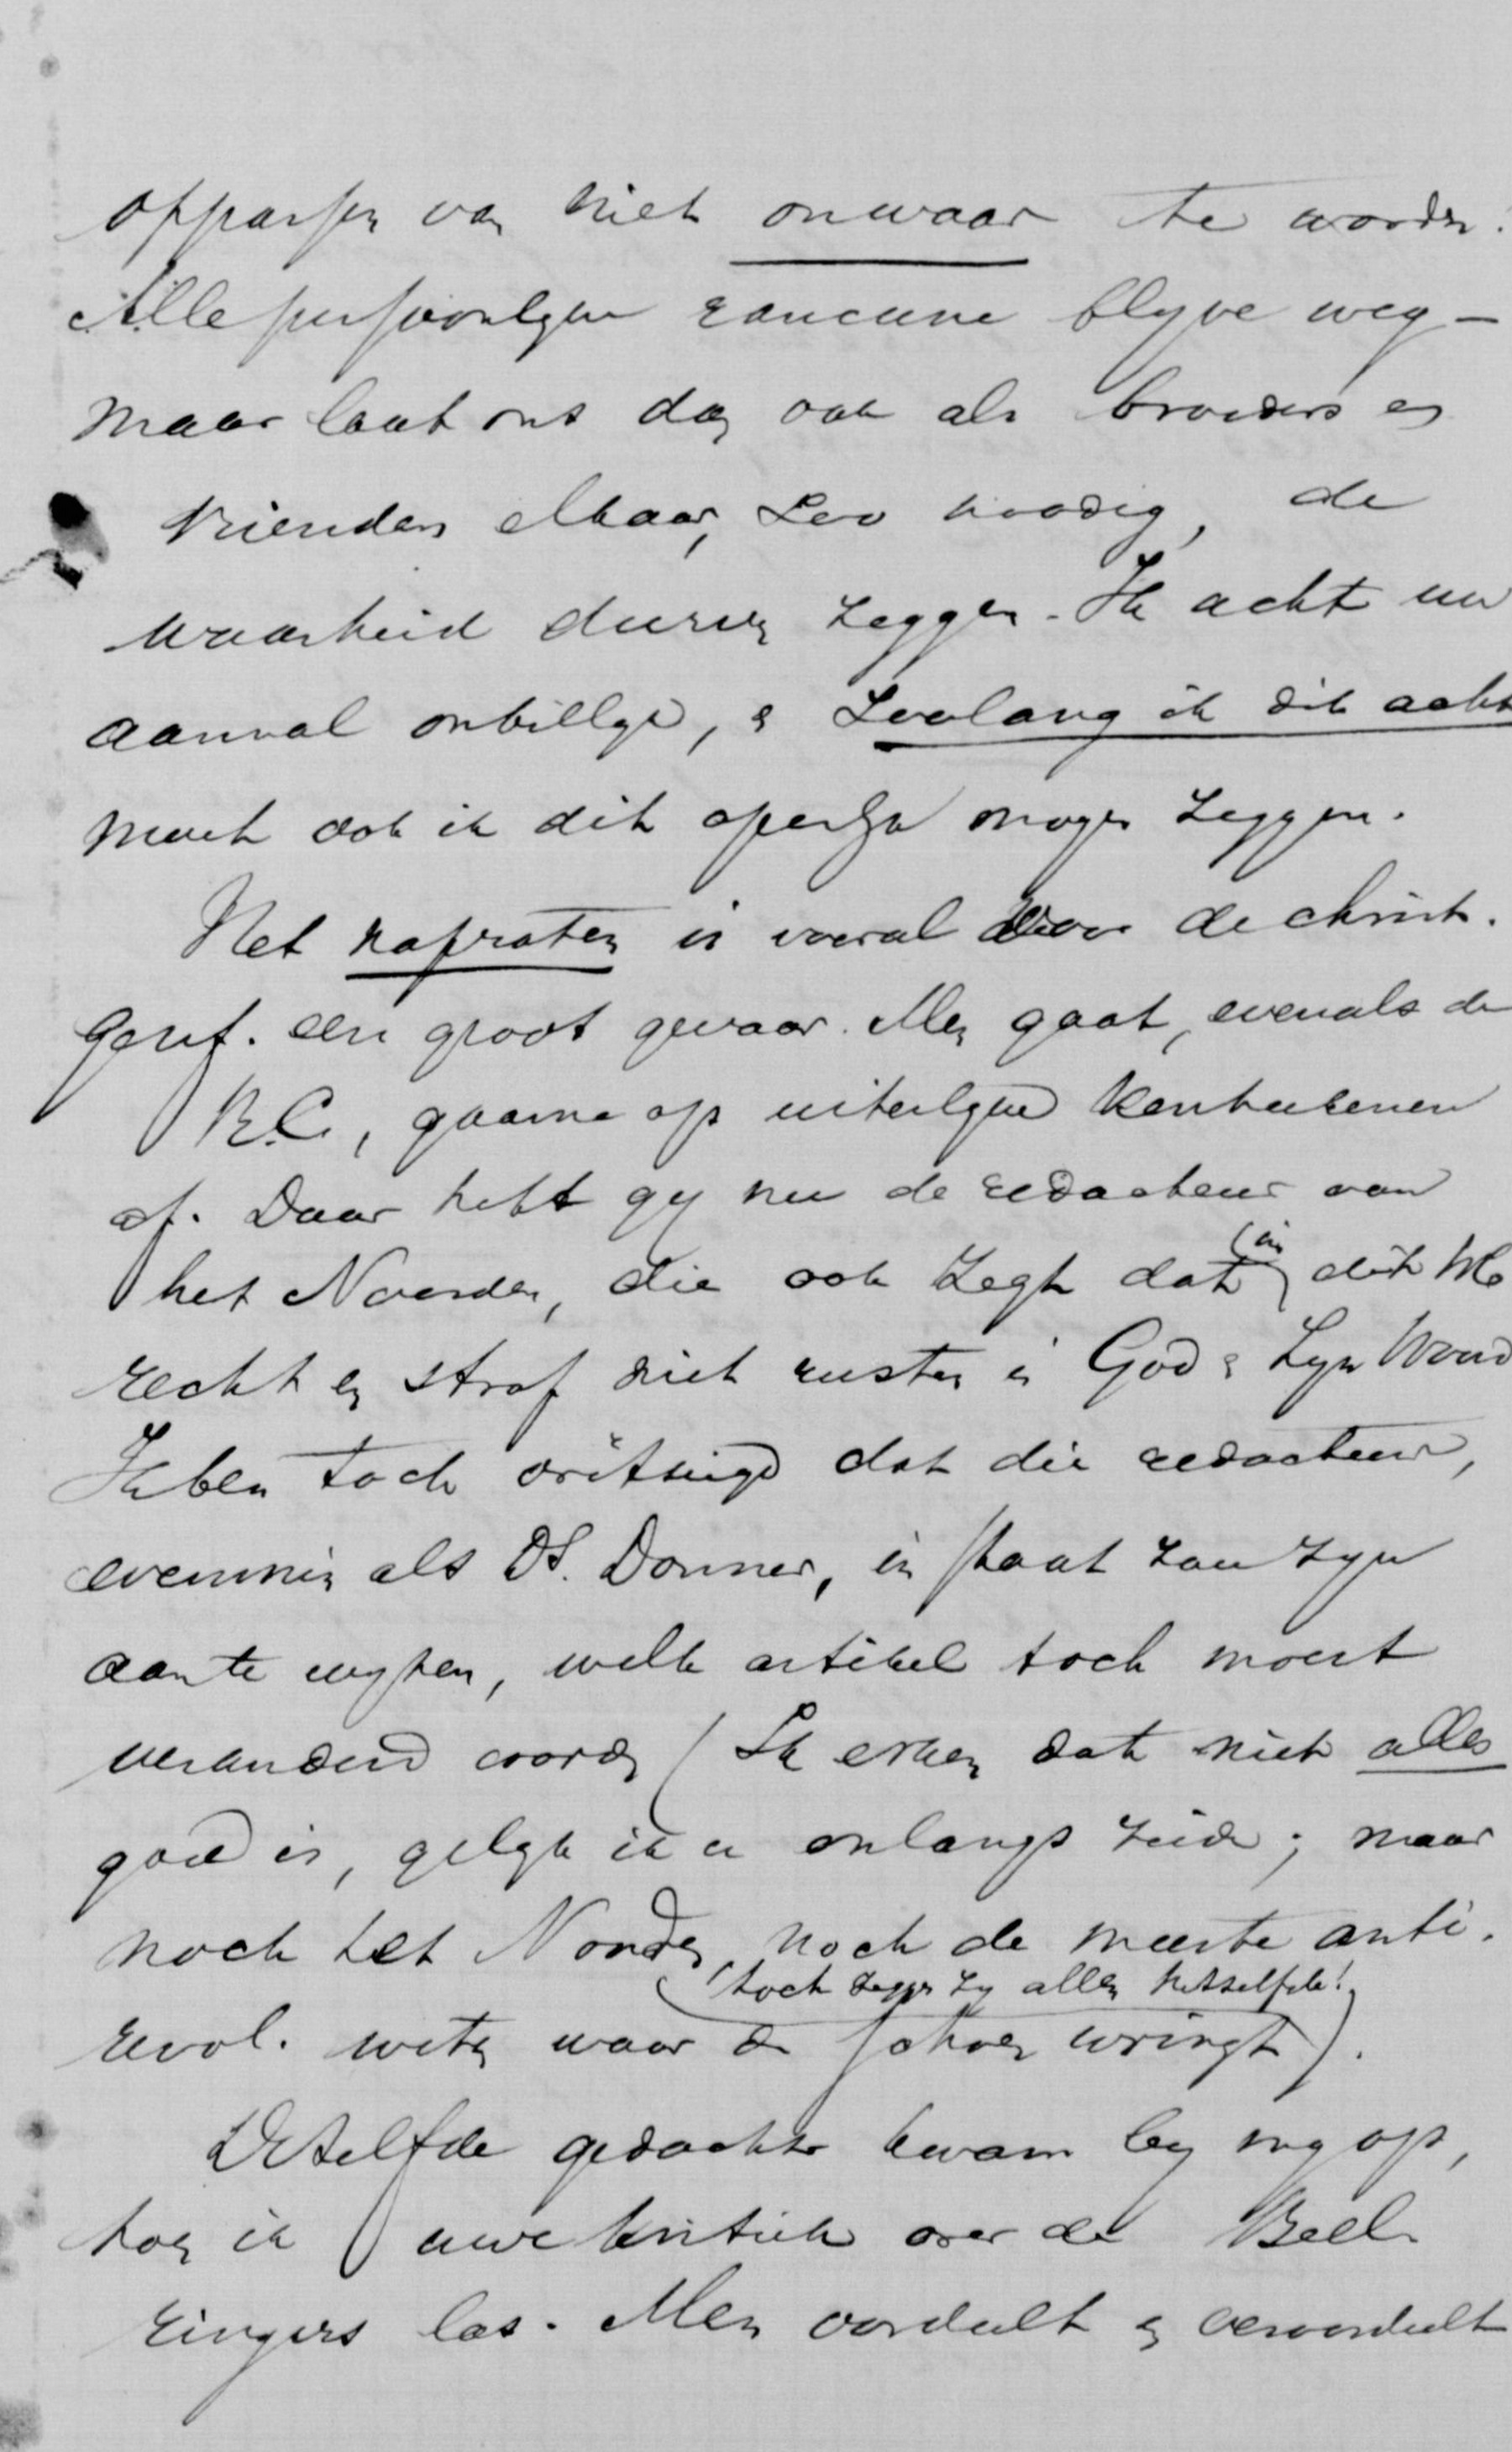 oppassen van niet onwaar te worden.
Alle persoonlyke rancune blyve weg –
maar laat ons dan ook als broeders en
vrienden elkaar, zoo noodig, de
waarheid durven zeggen. Ik acht uw
aanval onbillyk, en zoolang ik dit acht
moet ook ik dit openlyk mogen zeggen.
Het napraten is vooral voor de christ.
geref. een groot gevaar. Men gaat, evenals de
R.C., gaarne op uiterlyke kenteekenen
af. Daar hebt gy nu de redacteur van
het Noorden, die ook zegt dat (in) dit
recht en straf niet rusten in God en Zyn Woord
Ik ben toch overtuigd dat die redacteur,
evenmin als Ds. Donner, in staat zou zyn
aan te wyzen, welk artikel toch moest
veranderd worden (Ik erken dat niet alles
goed is, gelyk ik u onlangs zeide; maar
noch het Noorden, noch de meeste anti.
(toch zeggen zy allen hetzelfde!)
revol. weten waar de schoen wringt).
Dezelfde gedachte kwam by my op,
toen ik uwe kritiek over de Beel
ringers las. Men oordeelt en veroordeelt